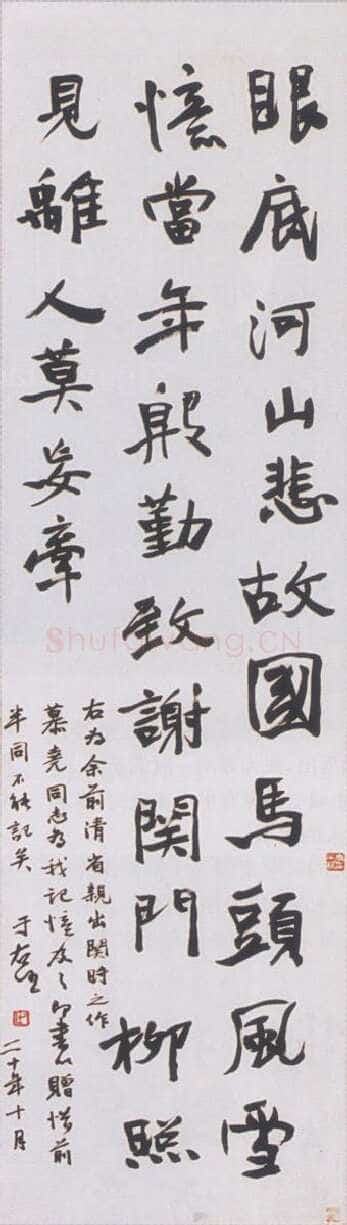 眼底河山悲故國馬頭風雪
憶當年殷勤致謝関門柳照
見離人莫妄牽
右为余前清省親出関時之作
慕堯同志为我記憶及之即書以贈惜前
半同不能記矣 于右任 二十年十月
Shufawang.CN